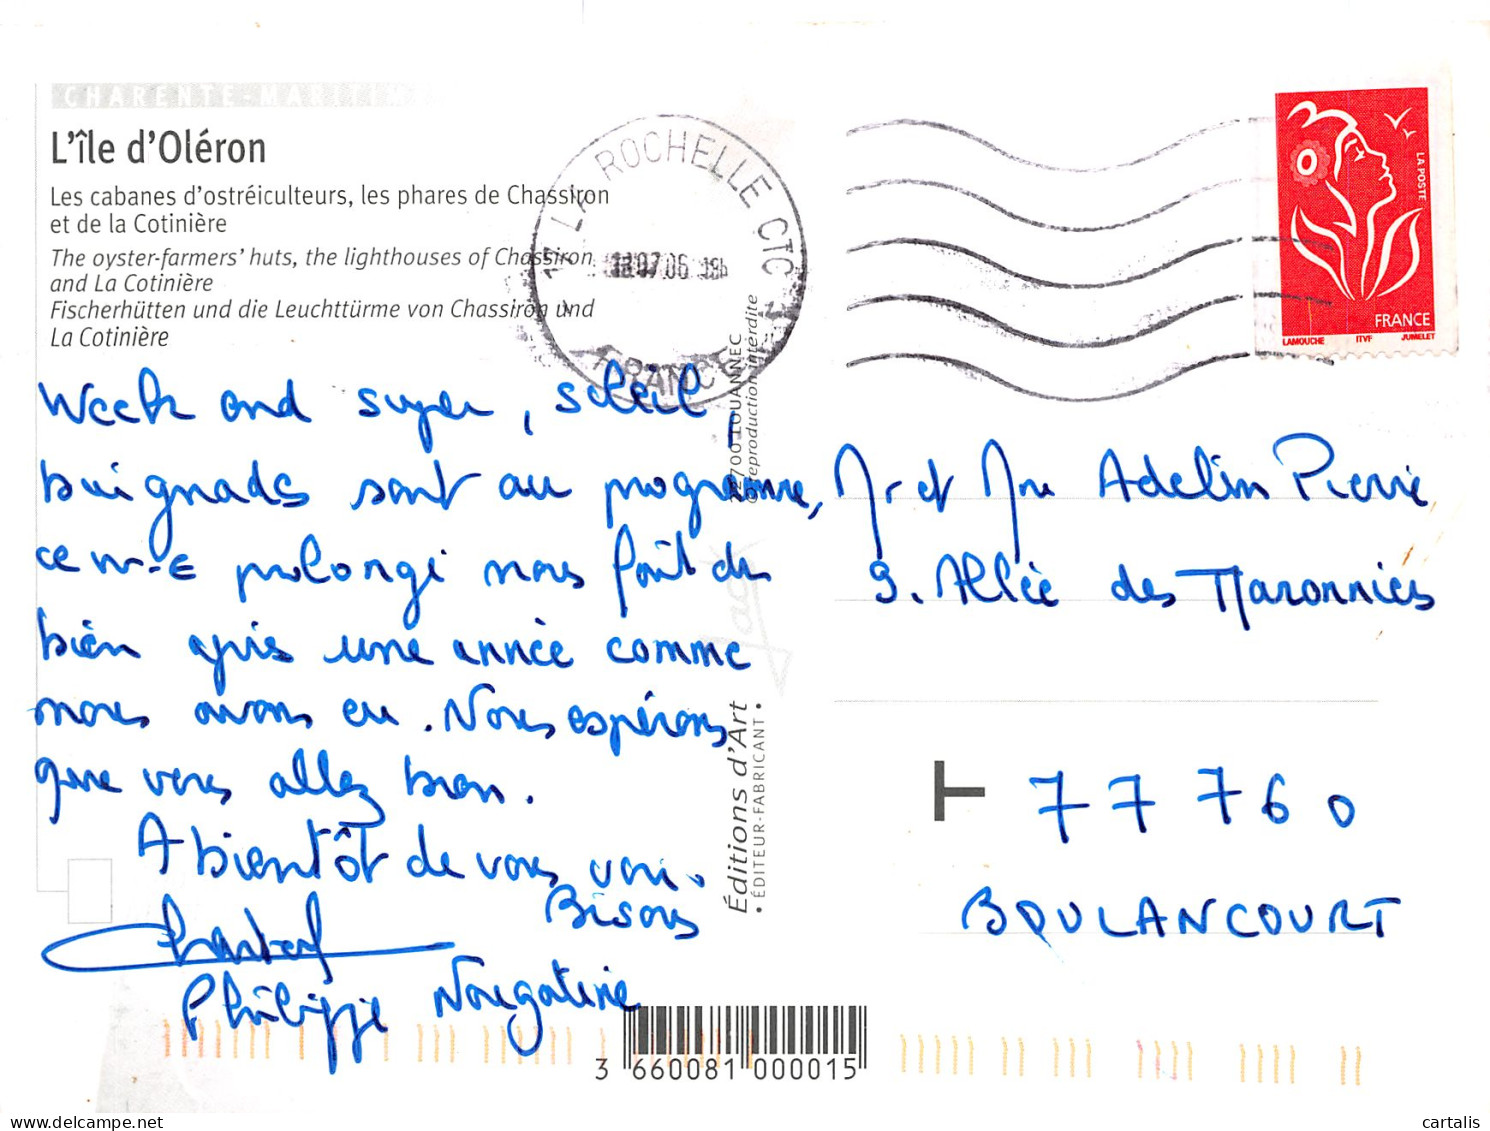 CHARENTE-MARITIME
L'île d'Oléron
Les cabanes d'ostréiculteurs, les phares de Chassiron
et de la Cotinière
The oyster-farmers' huts, the lighthouses of Chassiron
and La Cotinière
Fischerhütten und die Leuchttürme von Chassiron und
La Cotinière
LA ROCHELLE CTC
07.06
FRANCE
LA POSTE
FRANCE
LAMOUCHE ITVF JUMELET
Week end super, soleil,
baignades sont au programme,
ce w-e prolongé nous fait du
bien après une année comme
nous avons eu. Nous espérons
que vous allez bien.
A bientôt de vous voir.
Bisous
Chantal
Philippe Nougatine
LOUANNEC
©reproduction interdite
Jack
Éditions d'Art
• ÉDITEUR-FABRICANT •
Mr et Mme Adelin Pierre
9. Allée des Maronnies
T 77760
BOULANCOURT
3 660081 000015
cartalis